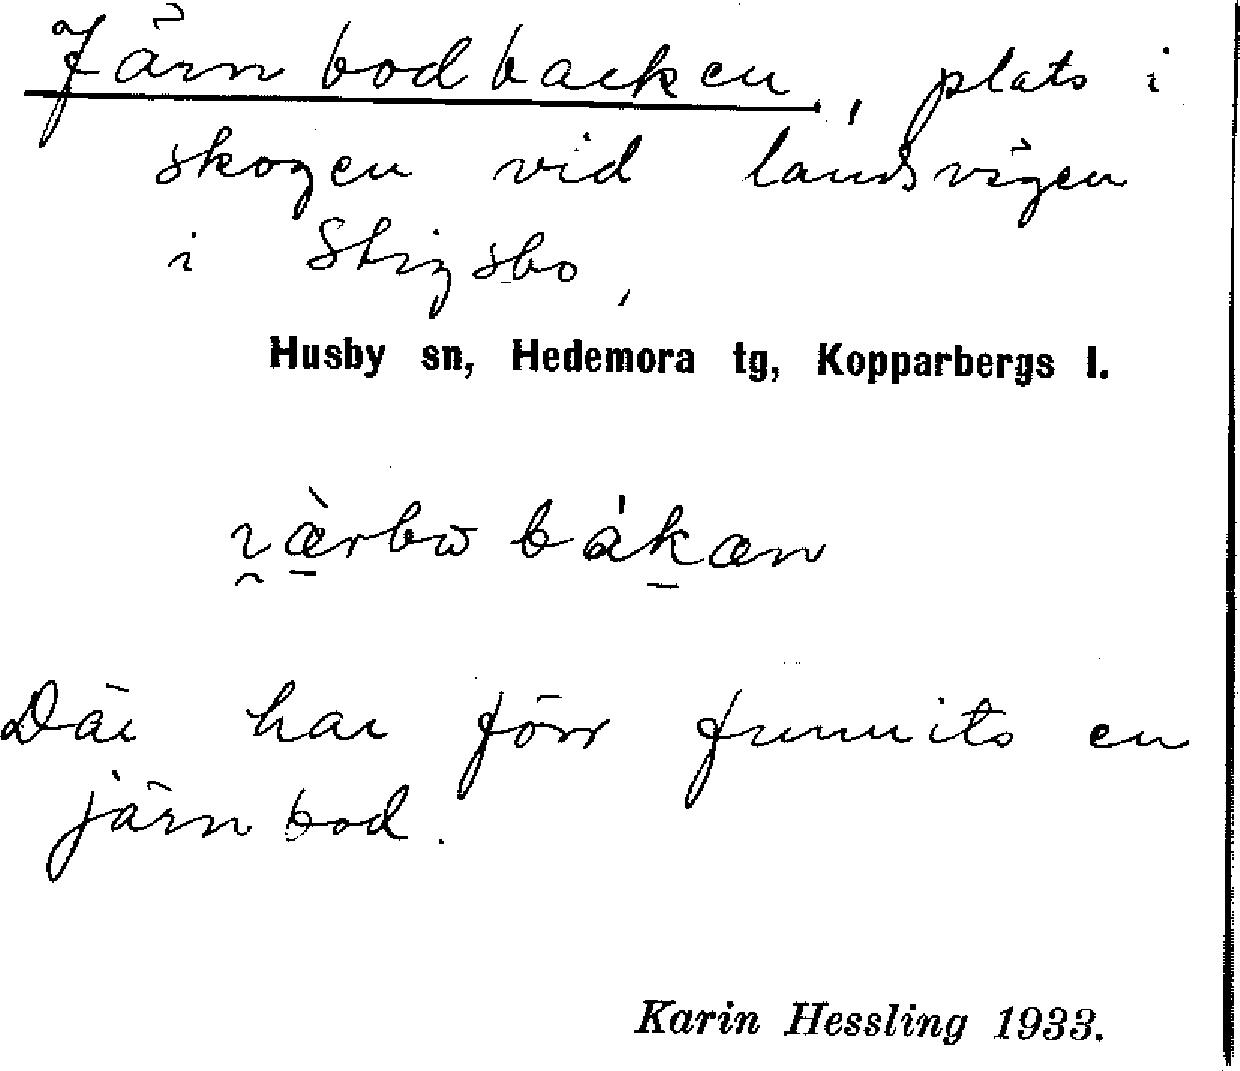 Järnbodbacken, plats i
skogen vid landsvägen
i Stigsbo,
Husby sn, Hedemora tg, Kopparbergs l.
Där har förr funnits en
järnbod.
Karin Hessling 1933.